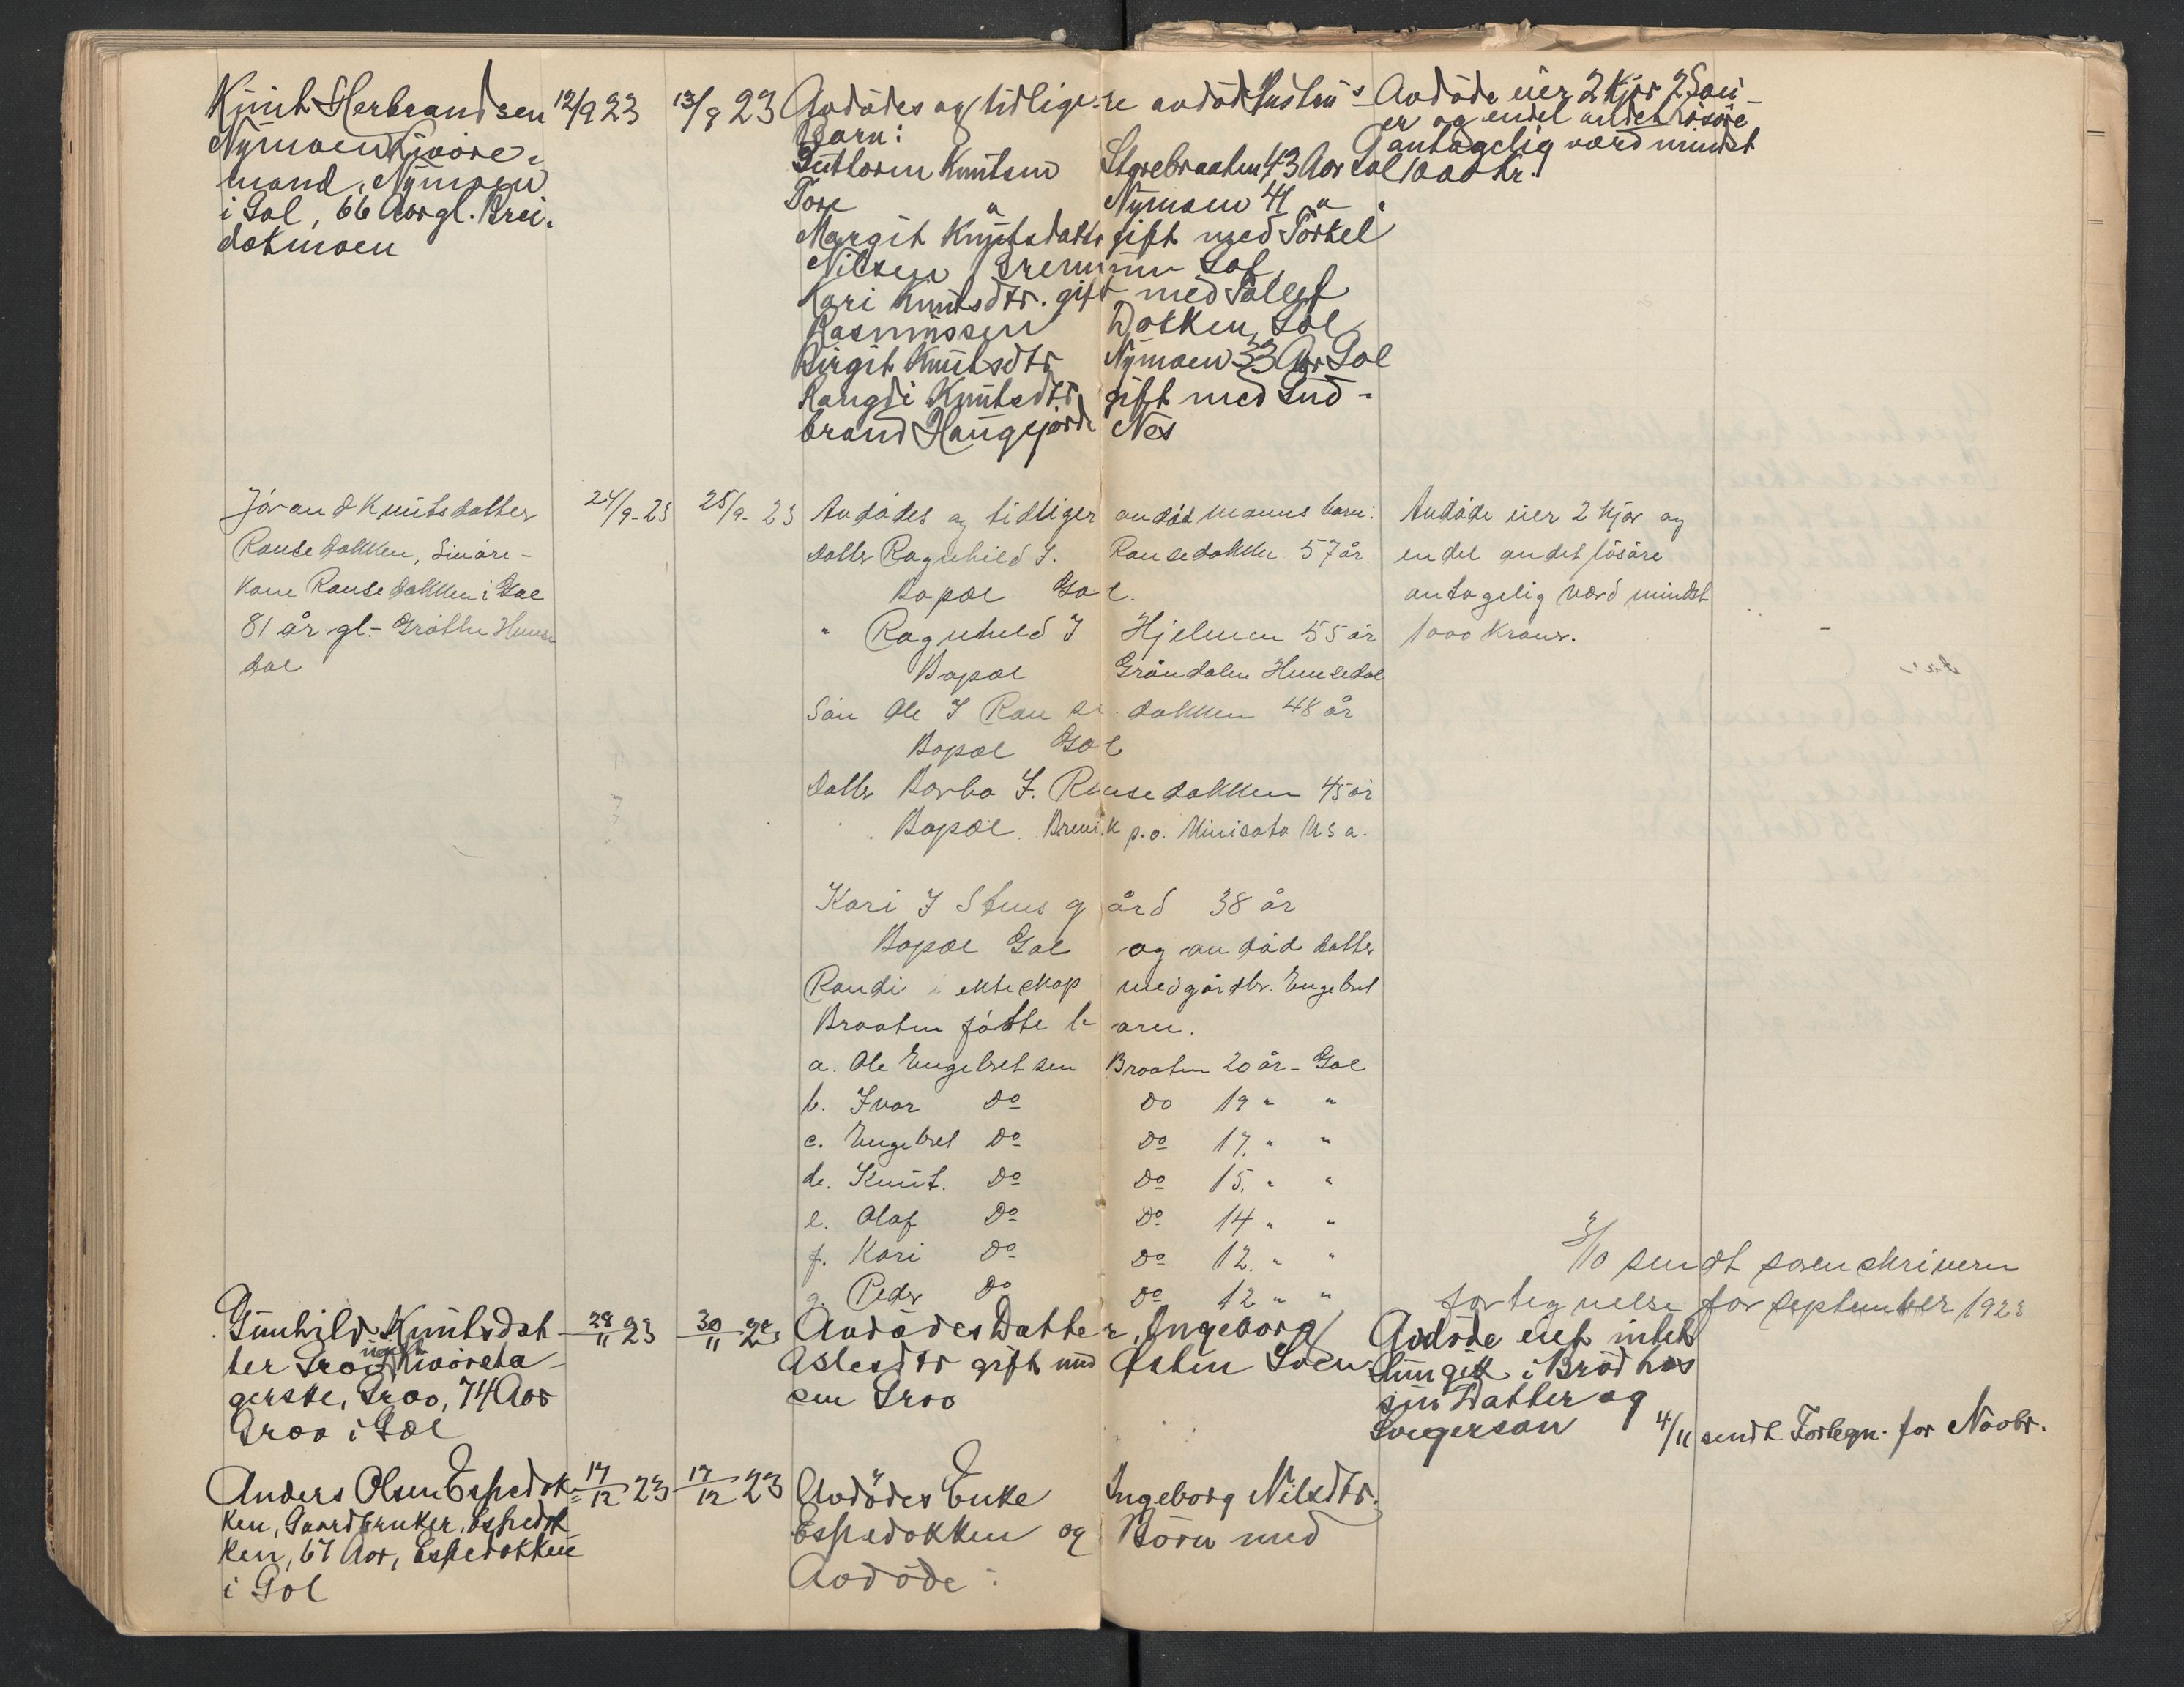 Knut Herbrandsen 12/9 23 13/9 23 Avdødes og tidligere avdød Hustru's Avdøde eier 2 Kjør 2 Sau-
Nymoen Livøre- Barn: er og endel andet løsøre
mand, Nymoen Guttorm Knutsen Styrebraaten 43 Aar Gol antagelig værd mindst
i Gol, 66 Aar gl. Brei- Tore " Nymoen 41 " " 1000 Kr.
dokmoen Margit Knutsdatter gift med Torkel
Nilsen Grenmun Gol
Kari Knutsdtr. gift med Tollef
Rasmussen Dokken, Gol
Birgit Knutsdtr Nymoen 33 Aar Gol
Rangdi Knutsdtr, gift med Gud-
brand Haugejorde Nes
Jørand Knutsdatter 24/9-23 25/9-23 Avdødes og tidliger avdød manns barn: Avdøde eier 2 kjør og
Rausedokken, Livøre- datter Ragnhild I. Rausedokken 57 år. endel andet løsøre
kone Rausedokken i Gol Bopæl Gol. antagelig værd mindst
81 år gl.- Grøthe Hemse " Ragnhild I Hjelmen 55 år 1000 kroner.
dal Bopæl Gröndalen Hemsedal
Søn Ole I Rausedokken 48 år
Bopæl Gol
datter Barbo I. Rausedokken 45 år
Bopæl. Brevik p.o. Minisota U S a.
Kari I Stensgård 38 år
Bopæl Gol og avdød datter
Randi i ekteskap med gårdbr. Engebret
Braaten fødte barn.
a. Ole Engebretsen Braaten 20 år- Gol
b. Ivar Do Do 19 " "
c. Engebret Do Do 17. " "
d. Knut. Do Do 15. " "
e. Olaf Do Do 14 " "
f. Kari Do Do 12. " "
g. Peder Do Do 12 " "
3/10 sendt sorenskriveren
fortegnelse for september 1923
Gunhild Knutsdat- 28/11 23 30/11 23 Avdødes Datter, Ingeborg Avdøde eiet intet
ter Groo, Livøreta- Aslesdtr gift med Østen Sven- hun gik i Brød hos
gerske, Groo, 74 Aar sen Groo sin Datter og
Groo i Gol Svigersøn 4/11 sendt Fortegn. for Novbr.
Anders Olsen Espedok- 17/12 23 17/12 23 Avdødes Enke Ingeborg Nilsdtr.
ken, Gaardbruker, Espedok Espedokken og Børn med
ken, 67 Aar, Espedokken Avdøde:
i Gol